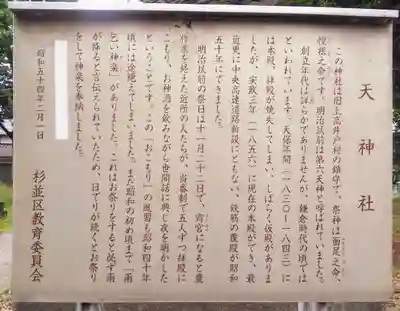 天神社
この神社は旧上高井戸村の鎮守で、祭神は面足之命、
惶根之命です。明治以前は第六天神と呼ばれていました。
創立年代は詳らかでありませんが、鎌倉時代の頃では
といわれています。天保年間(一八三〇―一八四三)に
は本殿、拝殿が焼失してしまい、しばらく仮殿がありま
したが、安政三年(一八五六)に現在の本殿ができ、最
近更に中央高速道路新設にともない、鉄筋の覆殿が昭和
五十年にできました。
明治以前の祭日は十一月二十二日で、宵宮になると農
作業を終えた近所の人たちが、当番制で五人ずつ拝殿に
こもり、お神酒を飲みながら世間話に興じ夜を明かした
ということです。この「おこもり」の風習も昭和四十年
頃には途絶えてしまいました。また昭和の初め頃まで「雨
乞い神楽」がありました。これはお祭りをすると必ず雨
が降ると言伝えられていたため、日でりが続くとお祭り
をして神楽を奉納しました。
昭和五十四年二月一日
杉並区教育委員会